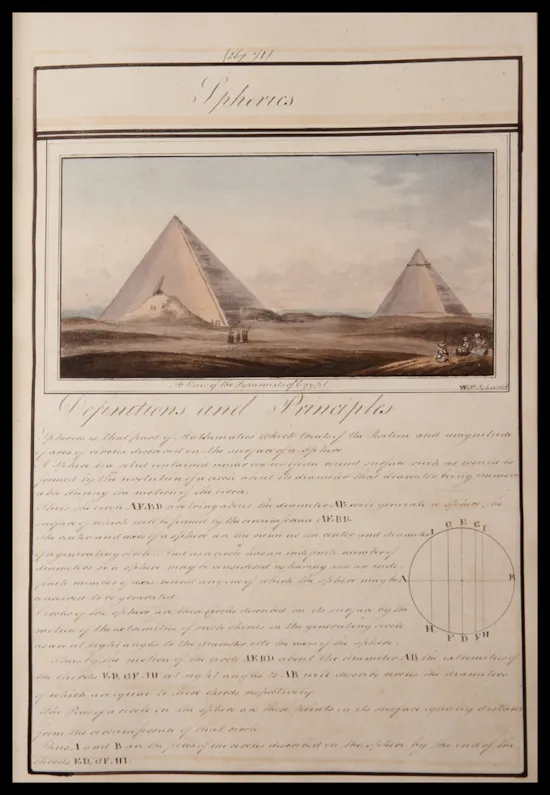 Spherics
A View of the Pyramids of Egypt
Definitions and Principles
Spherics is that part of Mathematics which treats of the Position and magnitude
of arcs of circles described on the surface of a sphere
A Sphere is a solid contained under one uniform round surface such as would be
formed by the revolution of a circle about its diameter that diameter being
during the motion of the circle.
Thus the circle AEBD about the diameter AB will generate a sphere, the
surface of which will be formed by the circumference AEBD.
The center and axis of a sphere are the same as the center and diameter
of a generating circle. And as a circle has an indefinite number of
diameters so a sphere may be considered as having also an inde-
finite number of axes round any one of which the sphere may be
conceived to be generated.
Circles of the sphere are those circles described on its surface by the
motion of the extremities of such chords in the generating circle
as are at right angles to the diameter or to the axis of the sphere.
Thus by the motion of the circle AEBD about the diameter AB the extremities of
the chords ED, GF, HI at right angles to AB will describe circles the diameters
of which are equal to those chords respectively.
The Poles of a circle on the sphere are those points in its surface equally distant
from the circumference of that circle
Thus A and B are the poles of the circles described on the sphere by the end of the
chords ED, GF, HI.
I C E G
A B
H F D F H